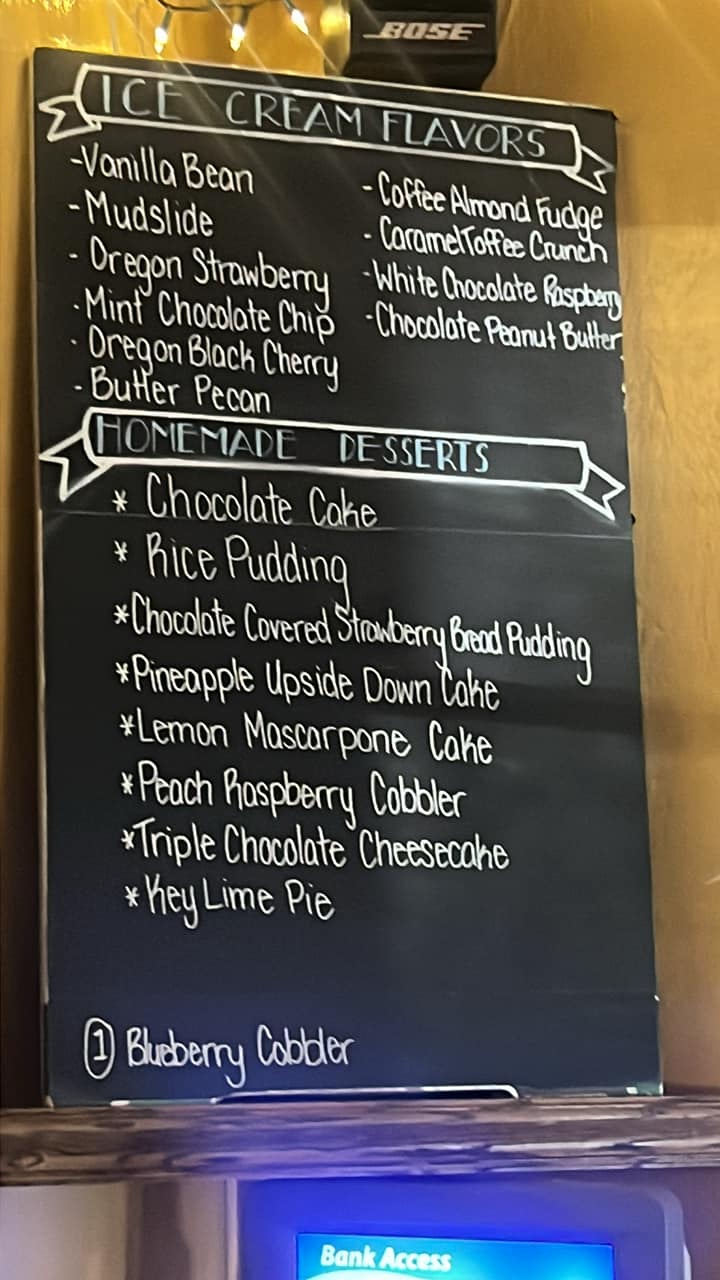 BOSE
ICE CREAM FLAVORS
-Vanilla Bean
-Mudslide
- Oregon Strawberry
-Mint Chocolate Chip
- Oregon Black Cherry
- Butter Pecan
- Coffee Almond Fudge
- Caramel Toffee Crunch
-White Chocolate Raspberry
-Chocolate Peanut Butter
HOMEMADE DESSERTS
* Chocolate Cake
* Rice Pudding
*Chocolate Covered Strawberry Bread Pudding
*Pineapple Upside Down Cake
*Lemon Mascarpone Cake
*Peach Raspberry Cobbler
*Triple Chocolate Cheesecake
* Key Lime Pie
① Blueberry Cobbler
Bank Access